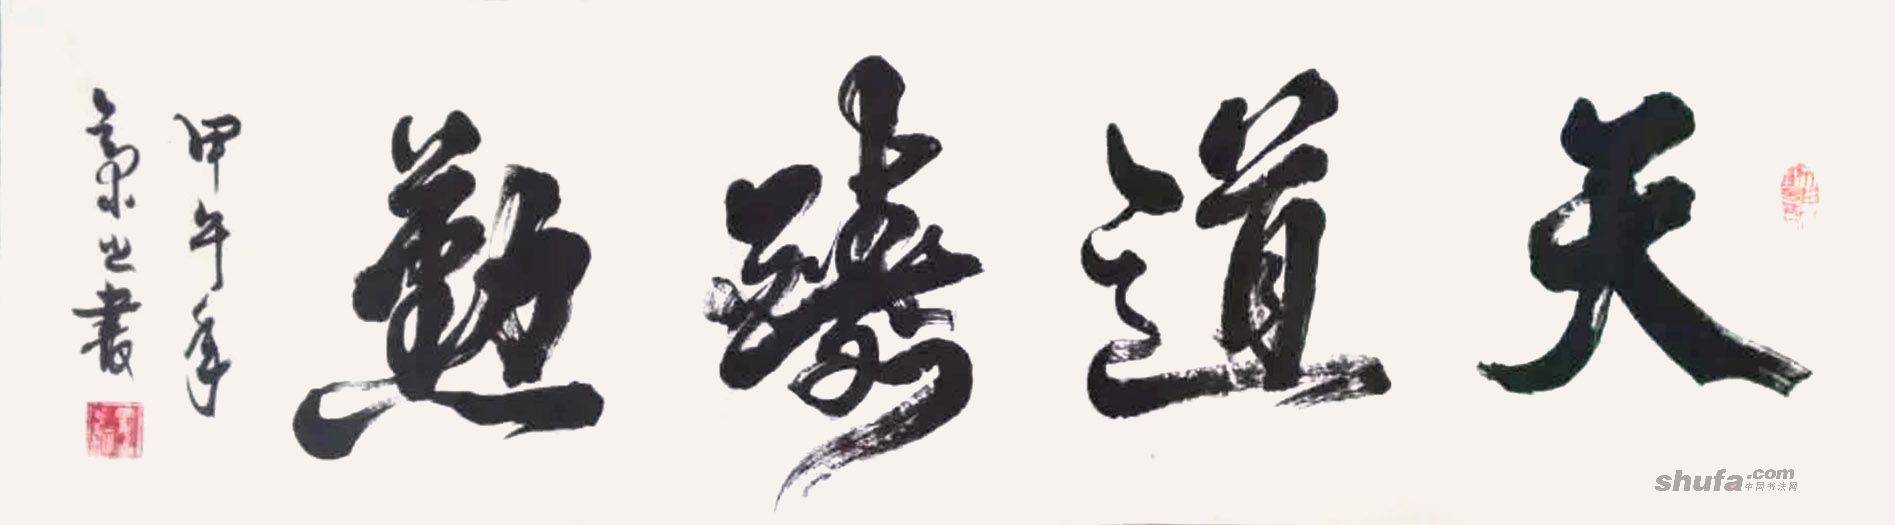 天道醻懃
甲午年
書
shufa.com
中国书法网